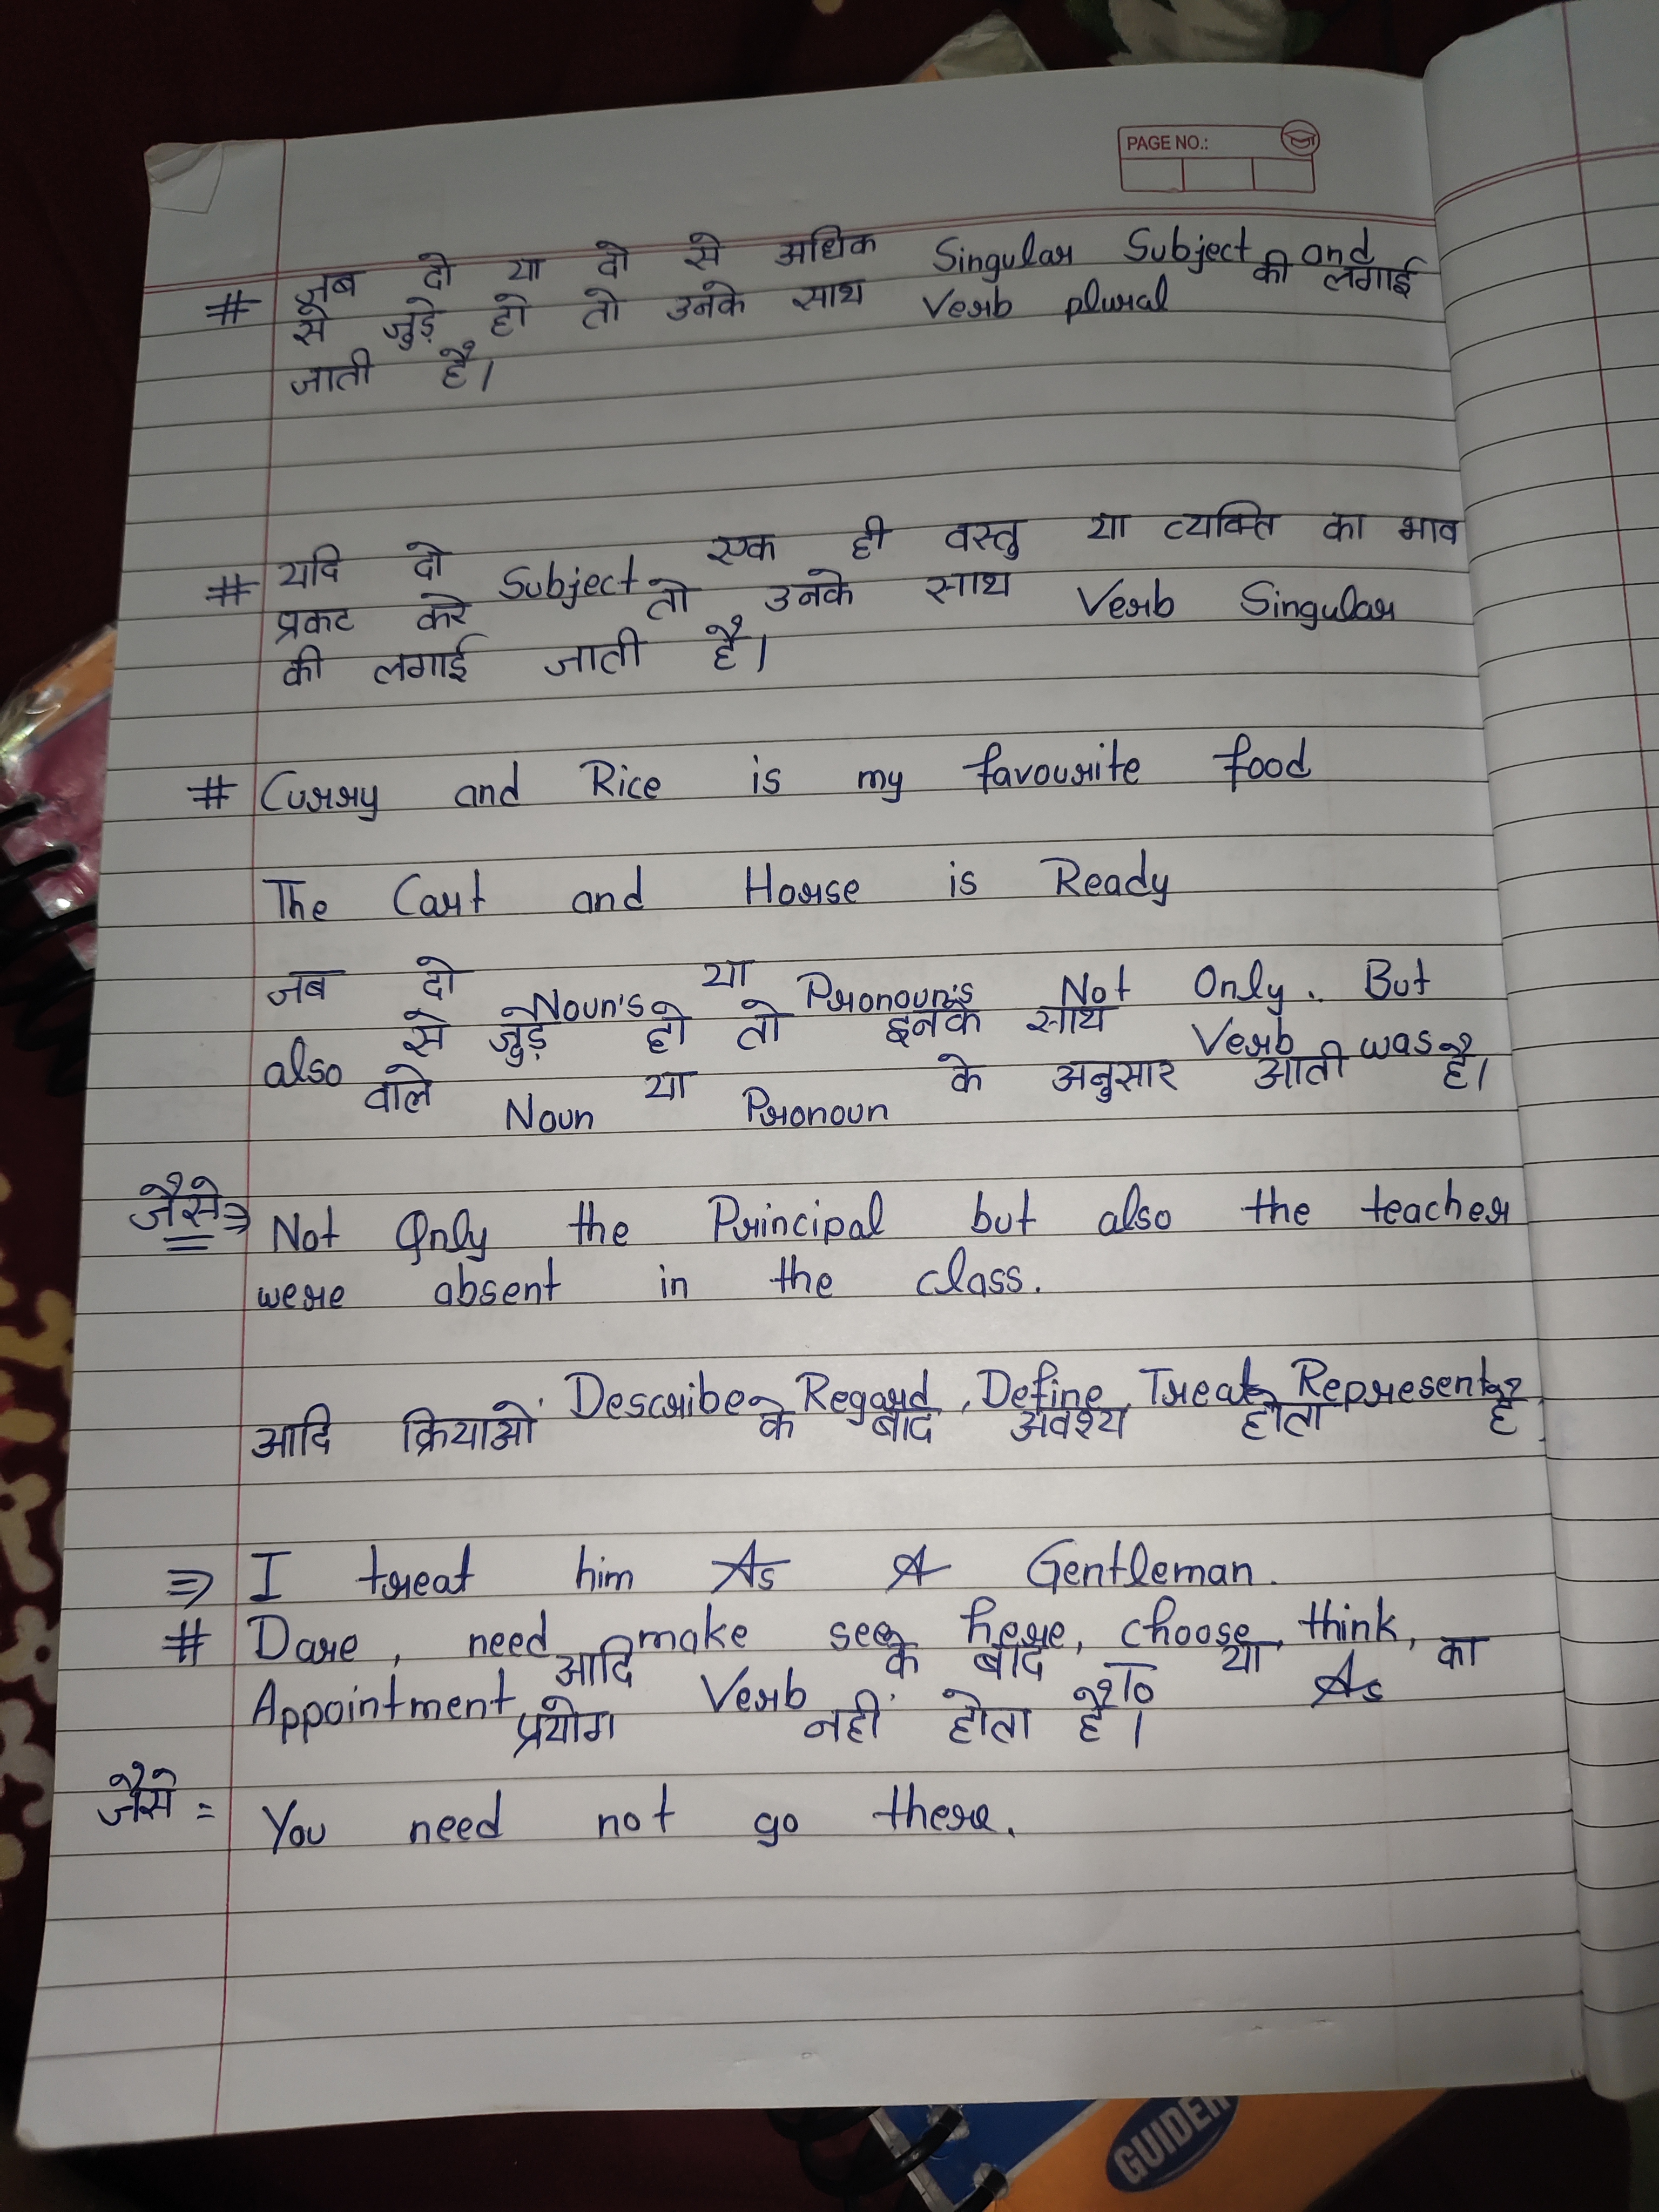 PAGE NO.:
# जब दो या दो से अधिक Singular Subject and
से जुड़े हो तो उनके साथ Verb plural की लगाई
जाती है।
# यदि दो Subject एक ही वस्तु या व्यक्ति का भाव
प्रकट करे तो उनके साथ Verb Singular
की लगाई जाती है।
# Curry and Rice is my favourite food
The Cart and Horse is Ready
जब दो Noun's या Pronoun's Not Only. But
also से जुड़े हो तो इनके साथ Verb was
वाले Noun या Pronoun के अनुसार आती है।
जैसे ⇒ Not Only the Principal but also the teacher
were absent in the class.
Describe, Regard, Define, Treat, Represent
आदि क्रियाओं के बाद अवश्य होता है
⇒ I treat him As A Gentleman.
# Dare, need, make see, here, choose, think,
Appointment आदि Verb के बाद To या As का
प्रयोग नहीं होता है।
जैसे = You need not go there.
GUIDER